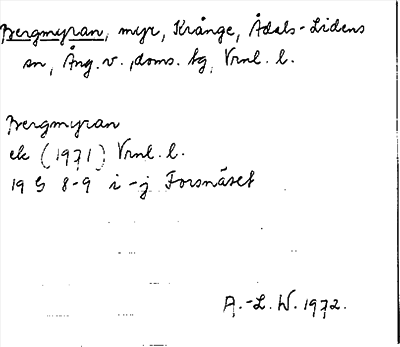 Bergmyran, myr, Krånge, Ådals-Lidens
sn, Ång.v., doms.bg, Vrnl. l.
Bergmyran
ek (1971) Vrnl. l.
19 G 8-9 i-j Forsnäset
A.-L. W. 1972.